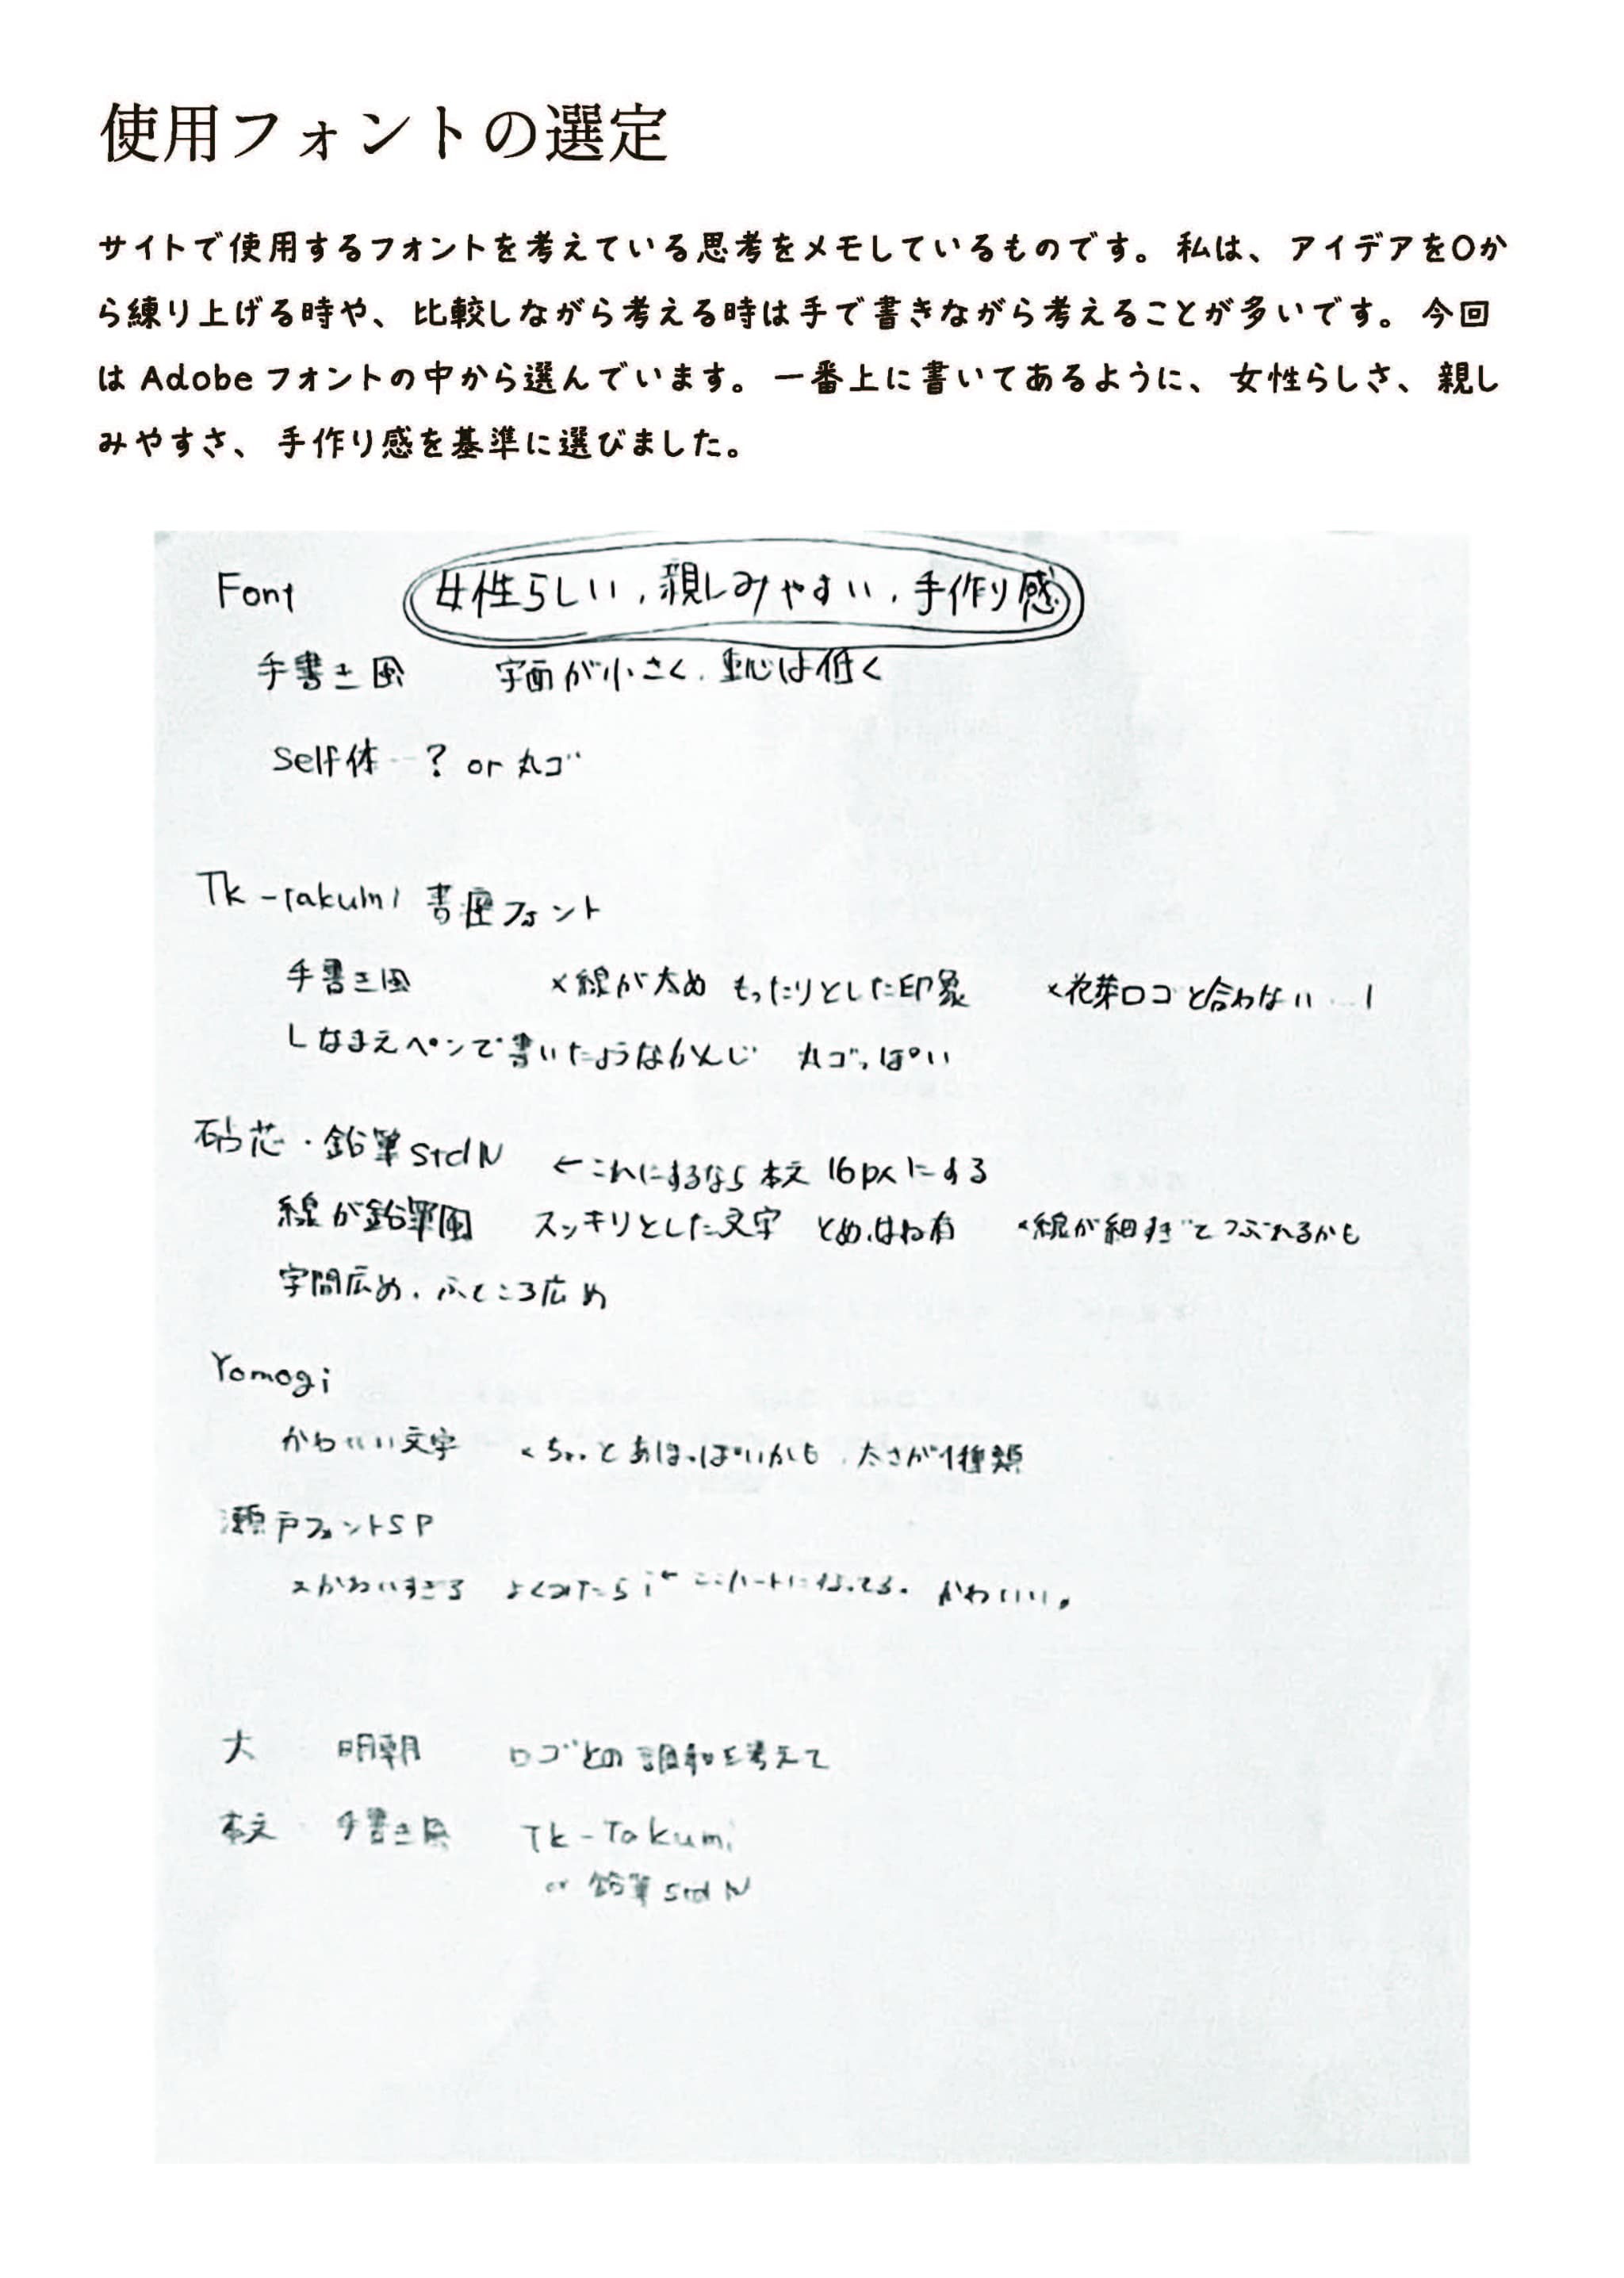 使用フォントの選定
サイトで使用するフォントを考えている思考をメモしているものです。私は、アイデアを0か
ら練り上げる時や、比較しながら考える時は手で書きながら考えることが多いです。今回
は Adobe フォントの中から選んでいます。一番上に書いてあるように、女性らしさ、親し
みやすさ、手作り感を基準に選びました。
Font 女性らしい,親しみやすい,手作り感
手書き風 字面が小さく,重心は低く
Self体…? or 丸ゴ
Tk-takumi 書痙フォント
手書き風 ×線が太め もったりとした印象 ×花芽ロゴと合わない…!
しなまえペンで書いたようなかんじ 丸ゴっぽい
砧芯・鉛筆StdN ←これにするなら本文16pxにする
線が鉛筆風 スッキリとした文字 とめ、はね有 ×線が細すぎてつぶれるかも
字間広め,ふところ広め
Yomogi
かわいい文字 ×ちょっとあほっぽいかも 太さが1種類
瀬戸フォントSP
×かわいすぎる よくみたらi← ここハートになってる。かわいい。
大 明朝 ロゴとの調和を考えて
本文 手書き風 Tk-Takumi
or 鉛筆StdN